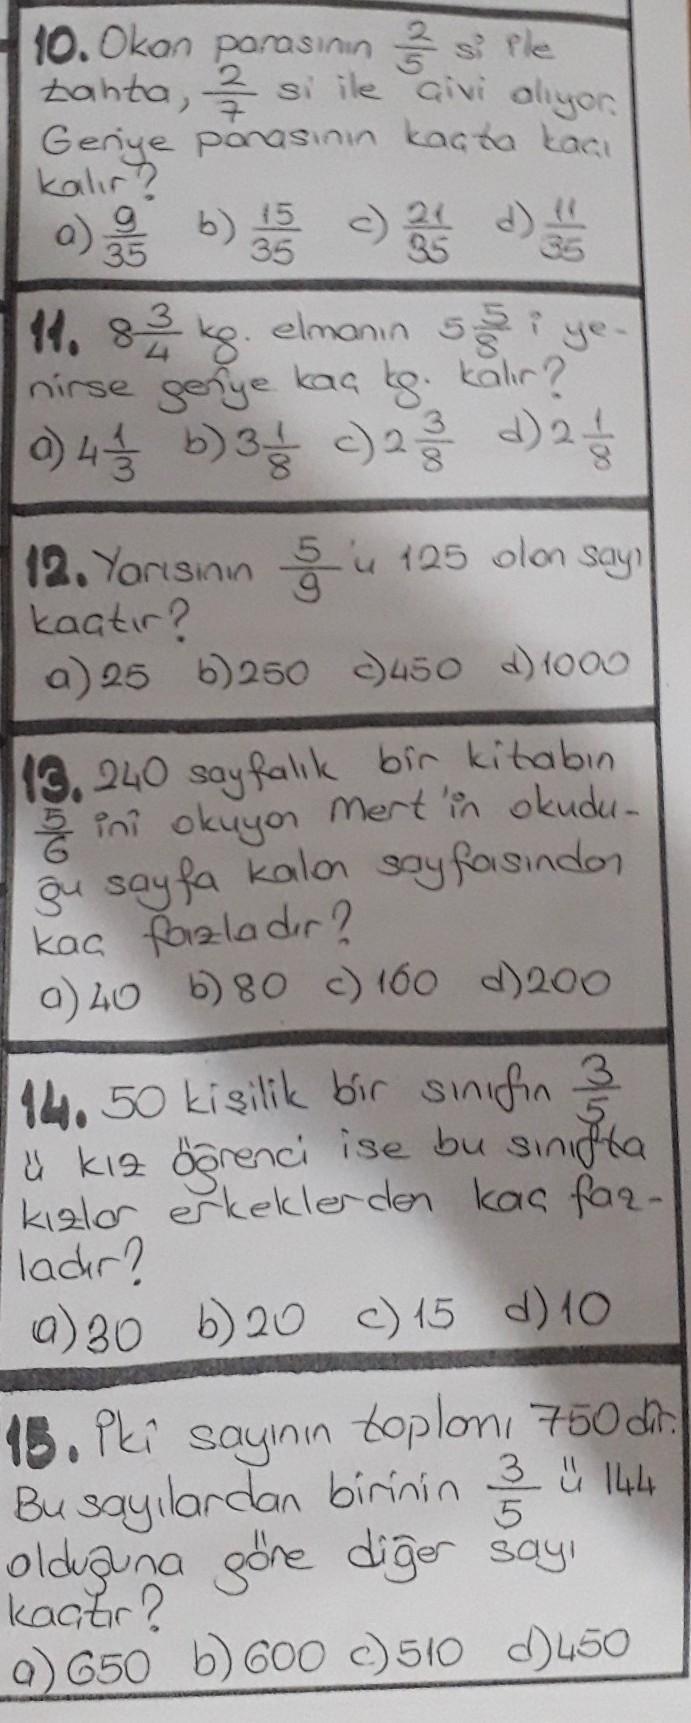 10. Okan parasının 2/5 si ile
tahta, 2/7 si ile çivi alıyor.
Geriye parasının kaçta kaçı
kalır?
a) 9/35 b) 15/35 c) 21/35 d) 11/35
11. 8 3/4 kg. elmanın 5 5/8 i ye-
nirse geriye kaç kg. kalır?
a) 4 1/3 b) 3 1/8 c) 2 3/8 d) 2 1/8
12. Yarısının 5/9 'u 125 olan sayı
kaçtır?
a) 25 b) 250 c) 450 d) 1000
13. 240 sayfalık bir kitabın
5/6 ini okuyan Mert'in okudu-
ğu sayfa kalan sayfasından
kaç fazladır?
a) 40 b) 80 c) 160 d) 200
14. 50 kişilik bir sınıfın 3/5
ü kız öğrenci ise bu sınıfta
kızlar erkeklerden kaç faz-
ladır?
a) 30 b) 20 c) 15 d) 10
15. İki sayının toplamı 750 dir.
Bu sayılardan birinin 3/5 ü 144
olduğuna göre diğer sayı
kaçtır?
a) 650 b) 600 c) 510 d) 450